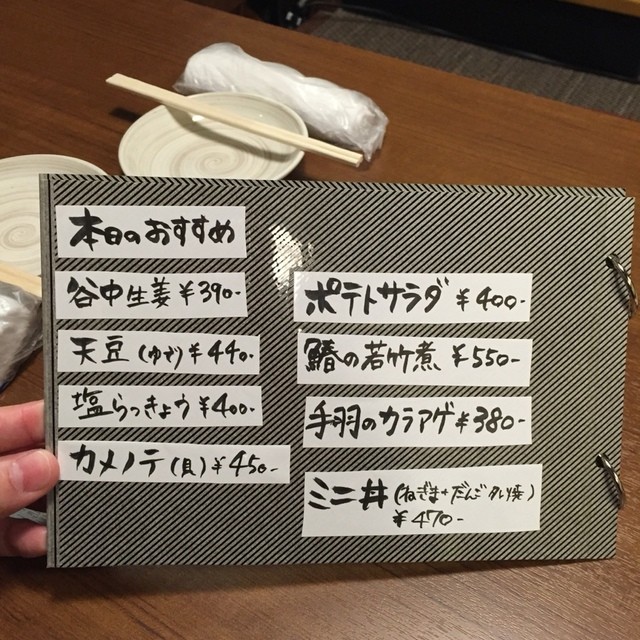 本日のおすすめ
谷中生姜 ¥390-
天豆(ゆで)¥440-
塩らっきょう ¥400-
カメノテ(貝)¥450-
ポテトサラダ ¥400-
鰆の若竹煮 ¥550-
手羽のカラアゲ ¥380-
ミニ丼(ねぎま+だんご タレ焼)
¥470-